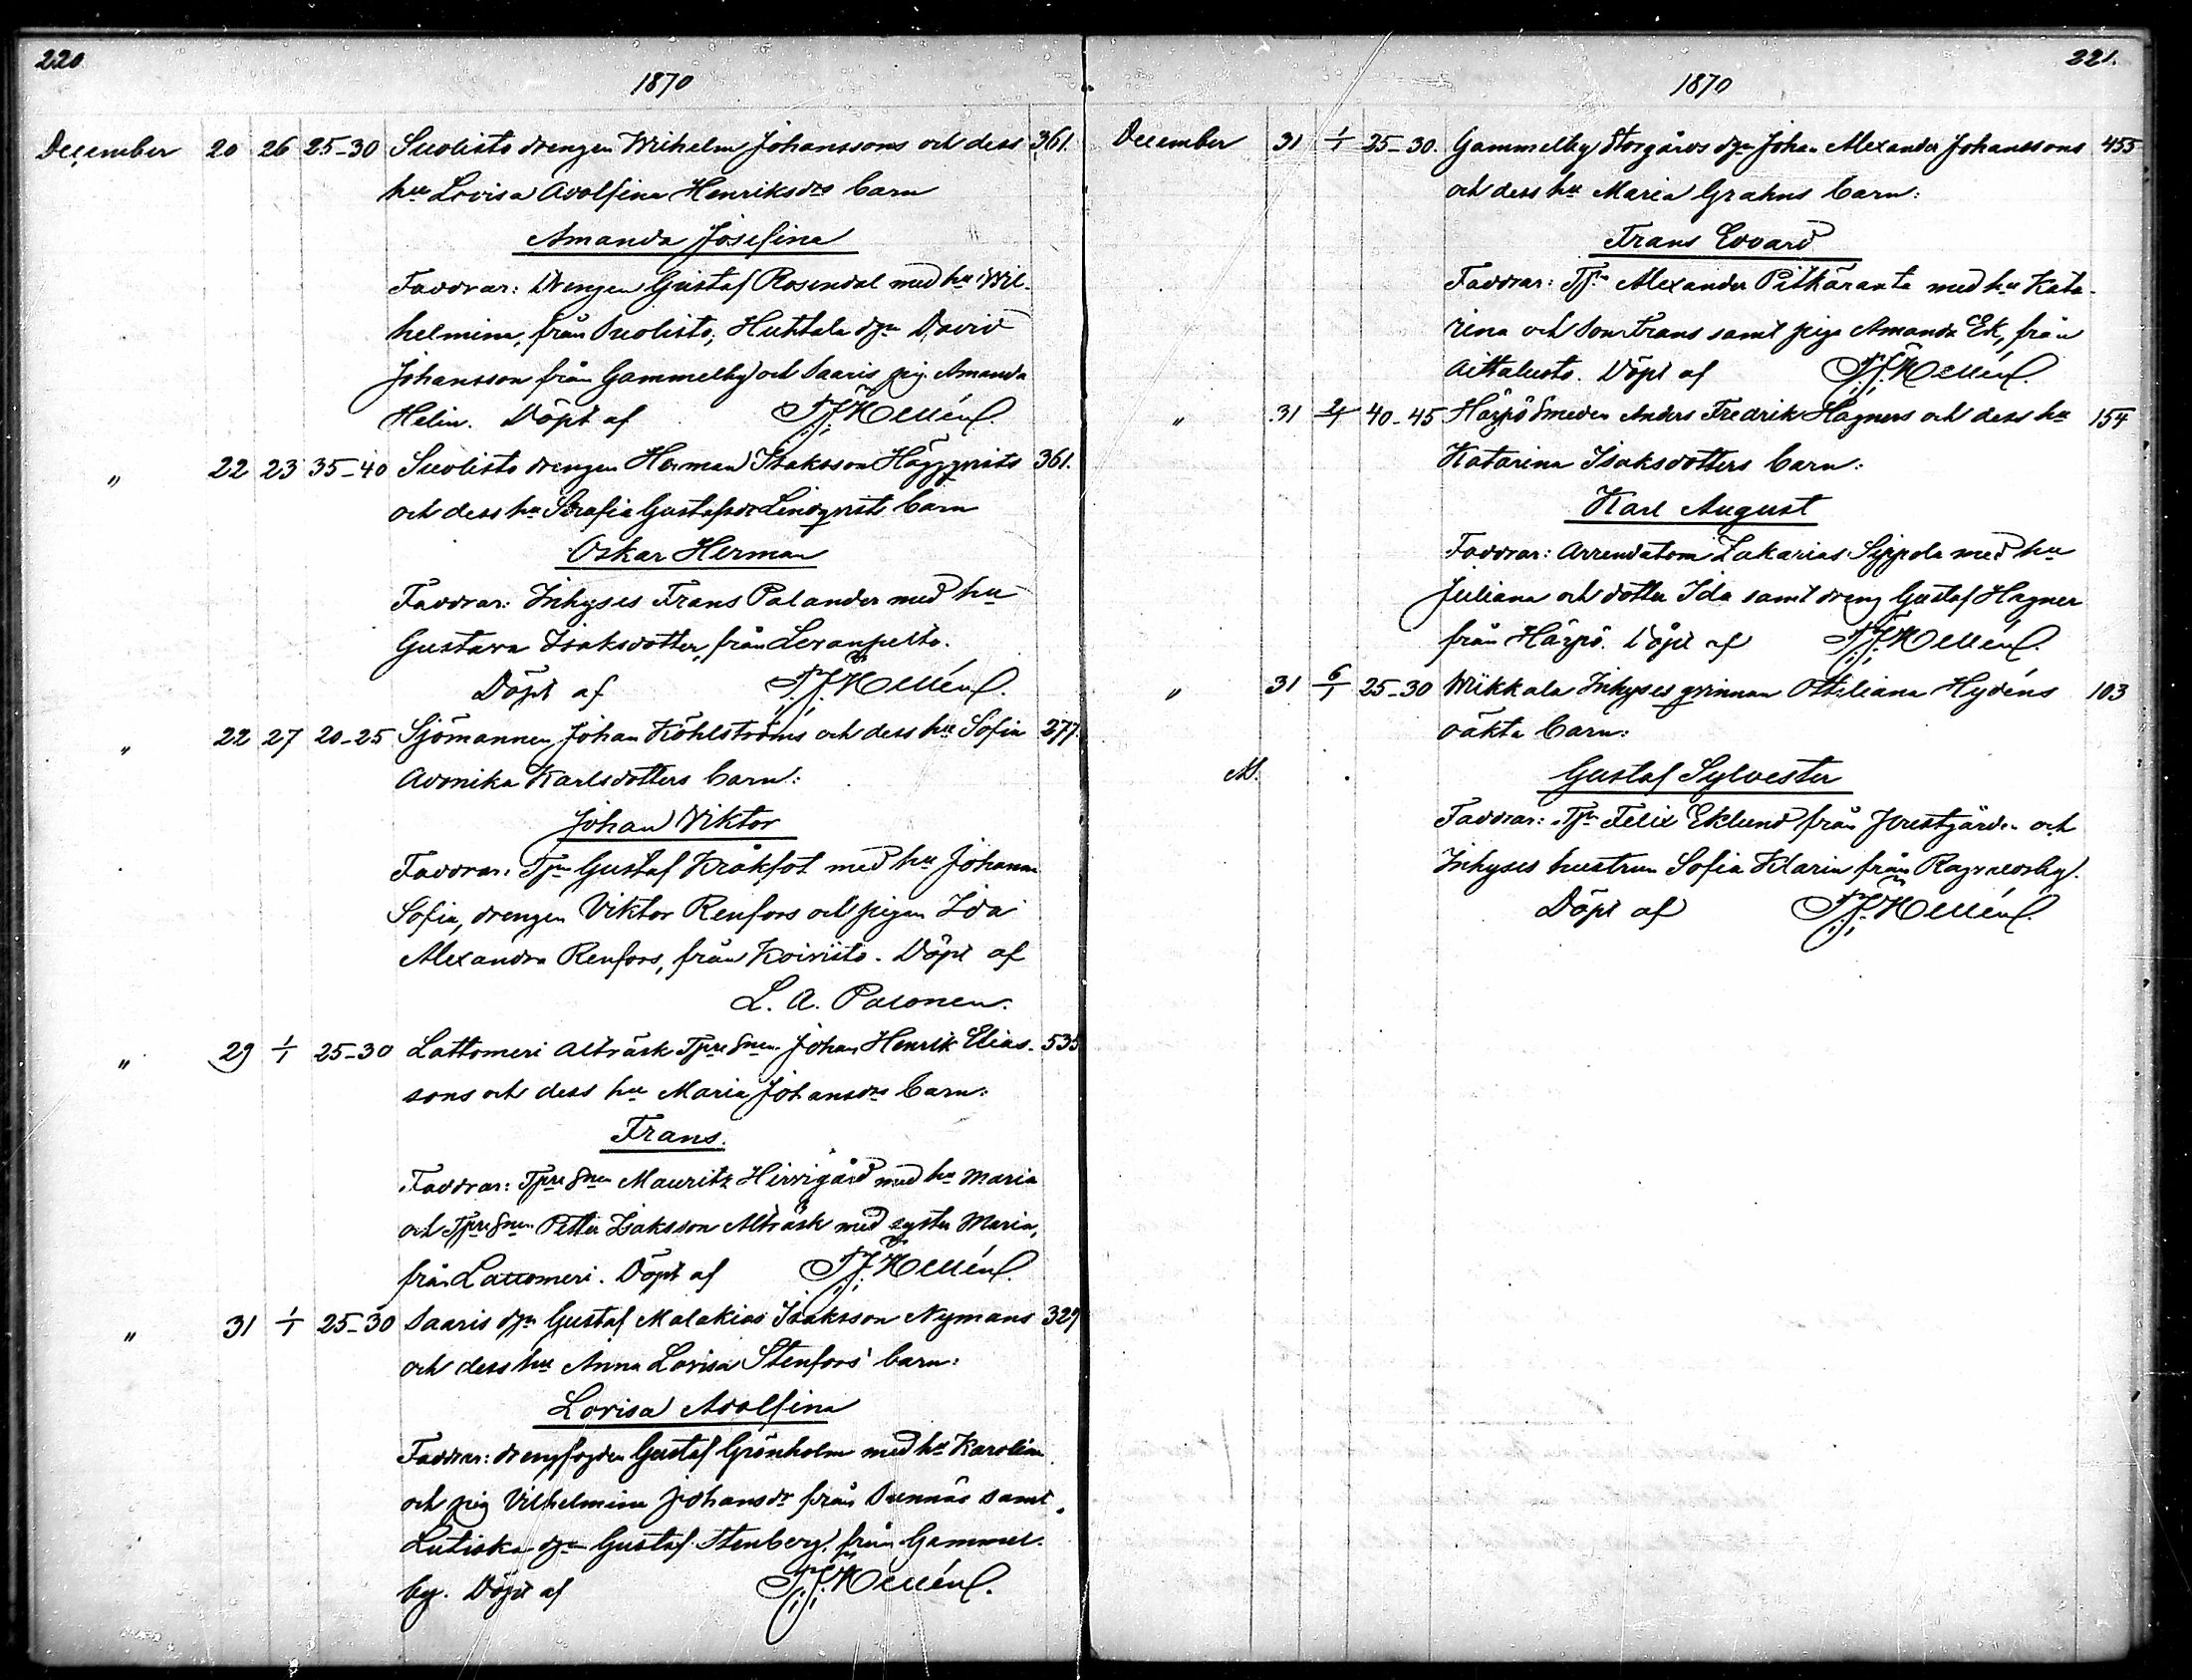 220
1870
December 20 26 25-30 Suolisto drengen Wilhelm Johanssons och dess 361.
hu Lovisa Adolfina Henriksdrs barn
Amanda Josefina
Faddrar: Drengen Gustaf Rosendal med hu Wil-
helmina, från Suolisto, Huttala dgn David
Johansson från Gammelby och Saaris pig. Amanda
Helin. Döpt af
" 22 23 35-40 Suolisto drengen Herman Isaksson Häggqvists 361.
och dess hu Serafia Gustafsdr Lindqvists barn
Oskar Herman
Faddrar: Inhyses Frans Palander med hu
Gustava Isaksdotter, från Levanpelto.
Döpt af
" 22 27 20-25 Sjömannen Johan Köhlströms och dess hu Sofia 277.
Avonika Karlsdotters barn:
Johan Viktor
Faddrar: Tpn Gustaf Kråkfot med hu Johanna
Sofia, drengen Viktor Renfors och pigan Ida
Alexandra Renfors, från Koivisto. Döpt af
L. A. Palonen.
" 29 1/1 25-30 Lattomeri Alträsk Tpre Snen Johan Henrik Elias- 535
sons och dess hu Maria Johansdrs barn:
Frans.
Faddrar: Tpre Snen Mauritz Hirvigård med hu Maria
och Tpre Snen Petter Isaksson Alträsk med syster Maria,
från Lattomeri. Döpt af
" 31 1/1 25-30 Saaris dgn Gustaf Malakias Isaksson Nymans 329
och dess hu Anna Lovisa Stenfors' barn:
Lovisa Adolfina
Faddrar: drengfogden Gustaf Grönholm med hu Karolina
och pig Vilhelmina Johansdr från Sunnäs samt
Lutiska dgn Gustaf Stenberg från Gammel-
by. Döpt af
221.
1870
December 31 1/1 25-30. Gammelby Storgårds dgn Johan Alexander Johanssons 455
och dess hu Maria Grahns barn:
Frans Edvard
Faddrar: Tpn Alexander Pitkäranta med hu Kata-
rina och Son Frans samt piga Amanda Ek, från
Aittaluoto. Döpt af
" 31 40-45 Härpö Smeden Anders Fredrik Hagners och dess hu 154
Katarina Isaksdotters barn:
Karl August
Faddrar: Arrendatorn Zakarias Sippola med hu
Juliana och dotter Ida samt dreng Gustaf Hagner
från Härpö. Döpt af
" 31 6/1 25-30 Wiikkala Inhyses qvinnan Ottiliana Hydéns 103
oäkta barn:
Gustaf Sylvester
Faddrar: Tpn Felix Eklund från Prestgården och
Inhyses hustrun Sofia Klarin från Ragvaldsby.
Döpt af